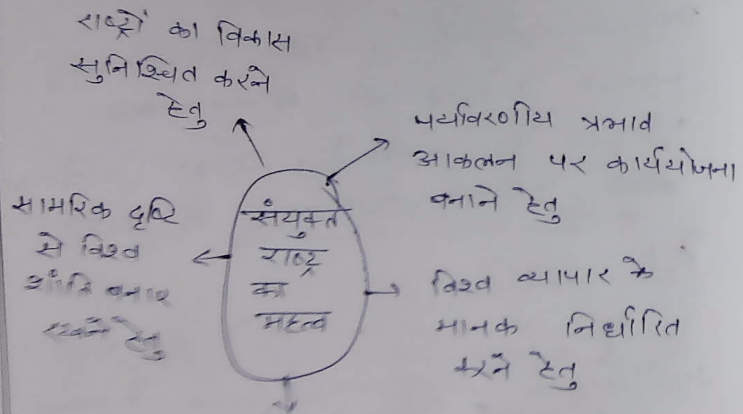 राष्ट्रों का विकास
सुनिश्चित करने
हेतु
पर्यावरणीय प्रभाव
आकलन पर कार्ययोजना
बनाने हेतु
सामरिक दृष्टि
से विश्व
शांति बनाए
रखने हेतु
संयुक्त
राष्ट्र
का
महत्व
विश्व व्यापार के
मानक निर्धारित
करने हेतु